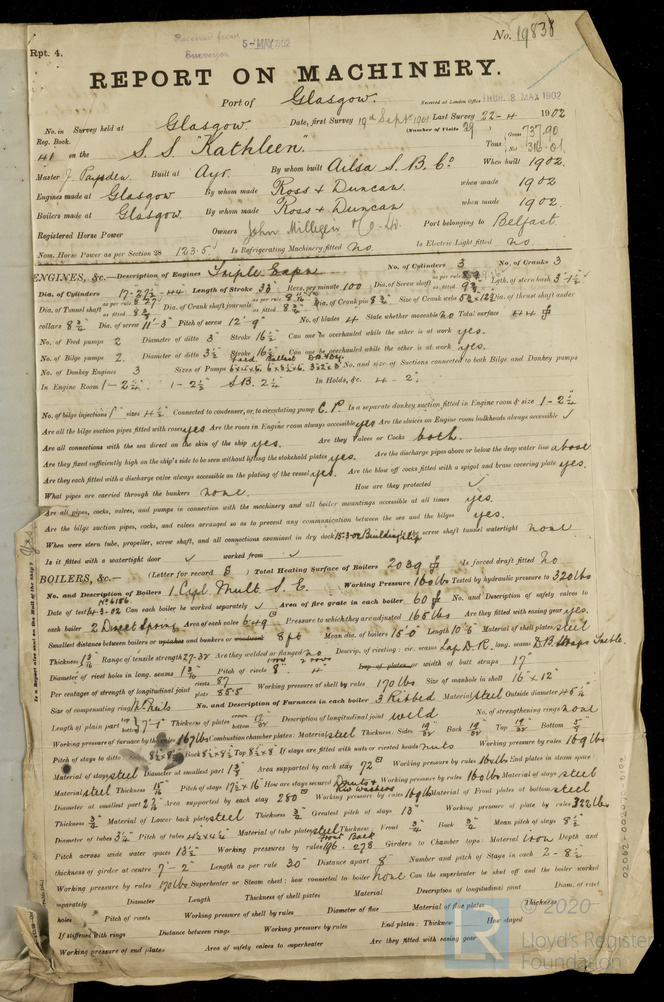 Rpt. 4.
Received from Surveyor
5-MAY 1902
No. 19838
REPORT ON MACHINERY.
Port of Glasgow.
Received at London Office THUR. 8 MAY 1902
No. in Survey held at Glasgow Date, first Survey 19th Sept. 1901 Last Survey 22-4 1902
Reg. Book. (Number of Visits 29)
41 on the S.S. "Kathleen" Tons Gross 737.90 Net 316.01
Master J. Built at Ayr. By whom built Ailsa S. B. Co. When built 1902.
Engines made at Glasgow By whom made Ross & Duncan when made 1902
Boilers made at Glasgow By whom made Ross & Duncan when made 1902.
Registered Horse Power Owners John Milligen & Co. Ld. Port belonging to Belfast.
Nom. Horse Power as per Section 28 123.5 Is Refrigerating Machinery fitted no. Is Electric Light fitted no.
ENGINES, &c.—Description of Engines Triple Expn No. of Cylinders 3 No. of Cranks 3
Dia. of Cylinders 17-27½-44 Length of Stroke 33 Revs. per minute 100 Dia. of Screw shaft as per rule as fitted Lgth. of stern bush 3'-1½"
Dia. of Tunnel shaft as per rule as fitted Dia. of Crank shaft journals as per rule as fitted Dia. of Crank pin 8¾" Size of Crank webs Dia. of thrust shaft under
collars 8¾" Dia. of screw 11'-3" Pitch of screw 12'-9" No. of blades 4 State whether moveable no Total surface 44
No. of Feed pumps 2 Diameter of ditto 3" Stroke 16½" Can one be overhauled while the other is at work yes.
No. of Bilge pumps 2. Diameter of ditto 3½ Stroke 16½" Can one be overhauled while the other is at work yes.
No. of Donkey Engines 3 Sizes of Pumps No. and size of Suctions connected to both Bilge and Donkey pumps
In Engine Room 1-2¼" 1-2½" S.B. 2¼ In Holds, &c. 4-2"
No. of bilge injections 1 sizes 4½ Connected to condenser, or to circulating pump C.P. Is a separate donkey suction fitted in Engine room & size 1-2¼"
Are all the bilge suction pipes fitted with roses yes Are the roses in Engine room always accessible yes Are the sluices on Engine room bulkheads always accessible ✓
Are all connections with the sea direct on the skin of the ship yes. Are they Valves or Cocks both.
Are they fixed sufficiently high on the ship's side to be seen without lifting the stokehold plates yes. Are the discharge pipes above or below the deep water line above
Are they each fitted with a discharge valve always accessible on the plating of the vessel yes. Are the blow off cocks fitted with a spigot and brass covering plate yes.
What pipes are carried through the bunkers none. How are they protected ✓
Are all pipes, cocks, valves, and pumps in connection with the machinery and all boiler mountings accessible at all times yes.
Are the bilge suction pipes, cocks, and valves arranged so as to prevent any communication between the sea and the bilges yes.
When were stern tube, propeller, screw shaft, and all connections examined in dry dock 15-3-02 Building Slip Is the screw shaft tunnel watertight none
Is it fitted with a watertight door ✓ worked from ✓
BOILERS, &c.— (Letter for record S) Total Heating Surface of Boilers 2039 Is forced draft fitted No
No. and Description of Boilers 1 Cyl. Mult. S. E. Working Pressure 160 lbs Tested by hydraulic pressure to 320 lbs
No 6186
Date of test 4-3-02 Can each boiler be worked separately ✓ Area of fire grate in each boiler 60 No. and Description of safety valves to
each boiler 2 Direct Spring Area of each valve Pressure to which they are adjusted 165 lbs Are they fitted with easing gear yes.
Smallest distance between boilers or uptakes and bunkers or woodwork 8 ft Mean dia. of boilers 15'-0" Length 10'-6" Material of shell plates steel
Thickness Range of tensile strength 27-32 Are they welded or flanged no Descrip. of riveting: cir. seams Lap D.R. long. seams D.B. Straps Treble.
Diameter of rivet holes in long. seams Pitch of rivets 8" Lap of plates or width of butt straps 17"
Per centages of strength of longitudinal joint rivets 87 plate 85.5 Working pressure of shell by rules 170 lbs Size of manhole in shell 16" x 12"
Size of compensating ring No. and Description of Furnaces in each boiler 3 Ribbed Material steel Outside diameter
Length of plain part top bottom Thickness of plates crown bottom Description of longitudinal joint weld No. of strengthening rings none
Working pressure of furnace by the rules 167 lbs Combustion chamber plates: Material steel Thickness: Sides Back Top Bottom
Pitch of stays to ditto: Sides Back 8½ x 8½ Top 8½ x 8" If stays are fitted with nuts or riveted heads nuts Working pressure by rules 169 lbs
Material of stays steel Diameter at smallest part Area supported by each stay 72 Working pressure by rules End plates in steam space:
Material steel Thickness Pitch of stays 17½ x 16 How are stays secured Working pressure by rules 160 lbs Material of stays steel
Diameter at smallest part Area supported by each stay 280 Working pressure by rules Material of Front plates at bottom steel
Thickness ¾" Material of Lower back plate steel Thickness ¾" Greatest pitch of stays 13" Working pressure of plate by rules 322 lbs
Diameter of tubes 3¼" Pitch of tubes Material of tube plates steel Thickness: Front ¾" Back ¾" Mean pitch of stays 8½
Pitch across wide water spaces 13½" Working pressures by rules Front 196. Back 278 Girders to Chamber tops: Material iron Depth and
thickness of girder at centre 7"-2" Length as per rule 30" Distance apart 8" Number and pitch of Stays in each 2-8½"
Working pressure by rules 170 lbs Superheater or Steam chest; how connected to boiler none Can the superheater be shut off and the boiler worked
separately Diameter Length Thickness of shell plates Material Description of longitudinal joint Diam. of rivet
holes Pitch of rivets Working pressure of shell by rules Diameter of flue Material of flue plates Thickness
If stiffened with rings Distance between rings Working pressure by rules End plates: Thickness How stayed
Working pressure of end plates Area of safety valves to superheater Are they fitted with easing gear
© 2020
LR
Lloyd's Register
Foundation